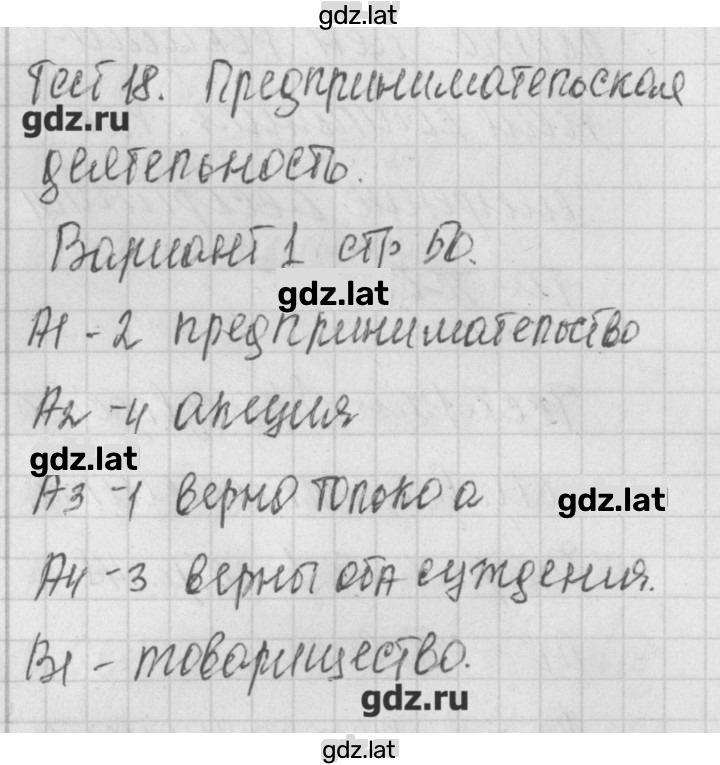 gdz.lat
Тест 18. Предпринимательская
gdz.ru
деятельность.
Вариант 1 стр 50.
gdz.lat
А1 - 2 предпринимательство
А2 - 4 акция
gdz.lat
А3 - 1 верно только а
gdz.lat
А4 - 3 верны оба суждения.
В1 - товарищество.
gdz.ru
gdz.lat